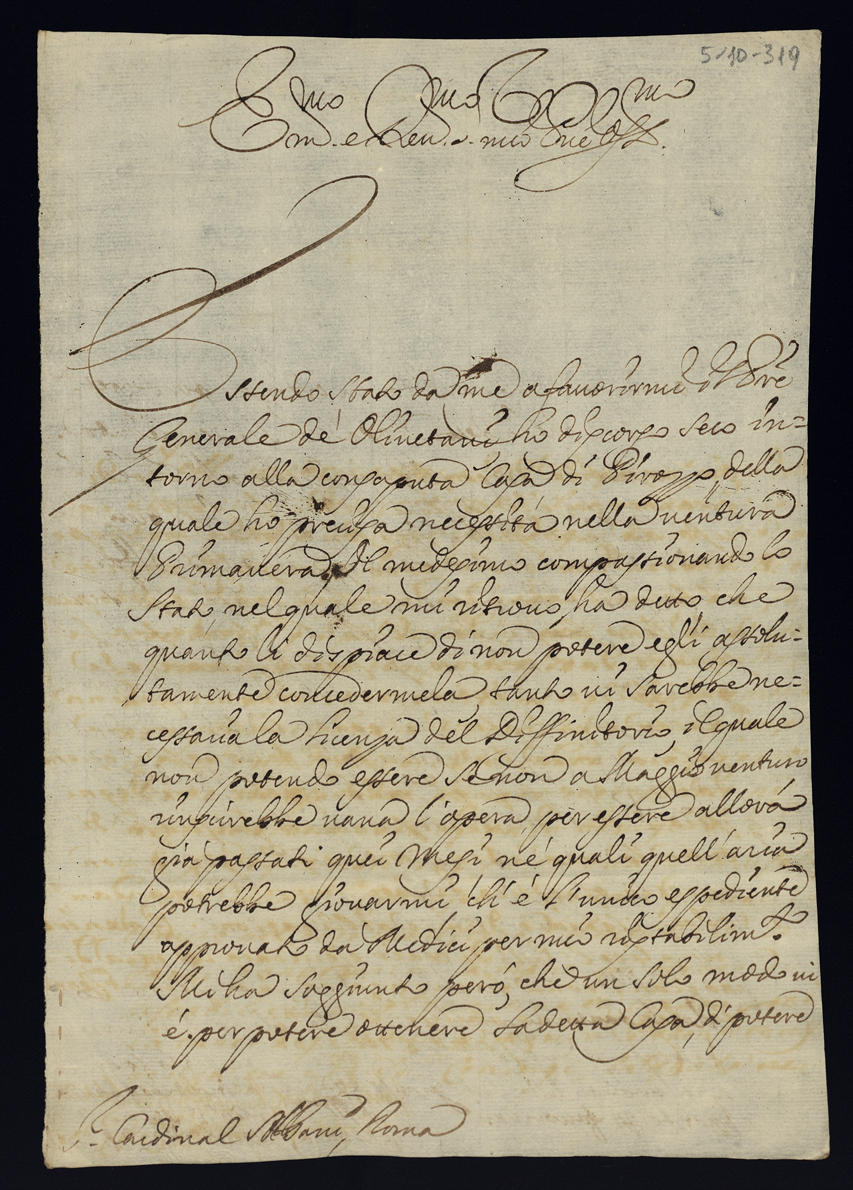 5-10-319
Em.mo e Rev.mo mio Sig.re Oss.mo
Essendo stato da me a favorirmi il P're
Generale de' Olivetani, ho discorso seco in=
torno alla consaputa Casa di
della
quale ho precisa necessità nella ventura
Primavera. Il medesimo compassionando lo
stato, nel quale mi ritrovo, ha detto, che
quanto li dispiace di non potere egli assolu=
tamente concedermela, tanto vi sarebbe ne=
cessaria la licenza del Diffinitorio, il quale
non potendo essere se non a Maggio venturo
riuscirebbe vana l'opera, per essere allora
già passati quei Mesi né quali quell'aria
potrebbe giovarmi ch'é l'unico espediente
approvato da Medici per mio ristabilim.to
Mi ha soggiunto però, che un solo modo vi
é per potere ottenere la detta Casa, di potere
S.r Cardinal Albani, Roma